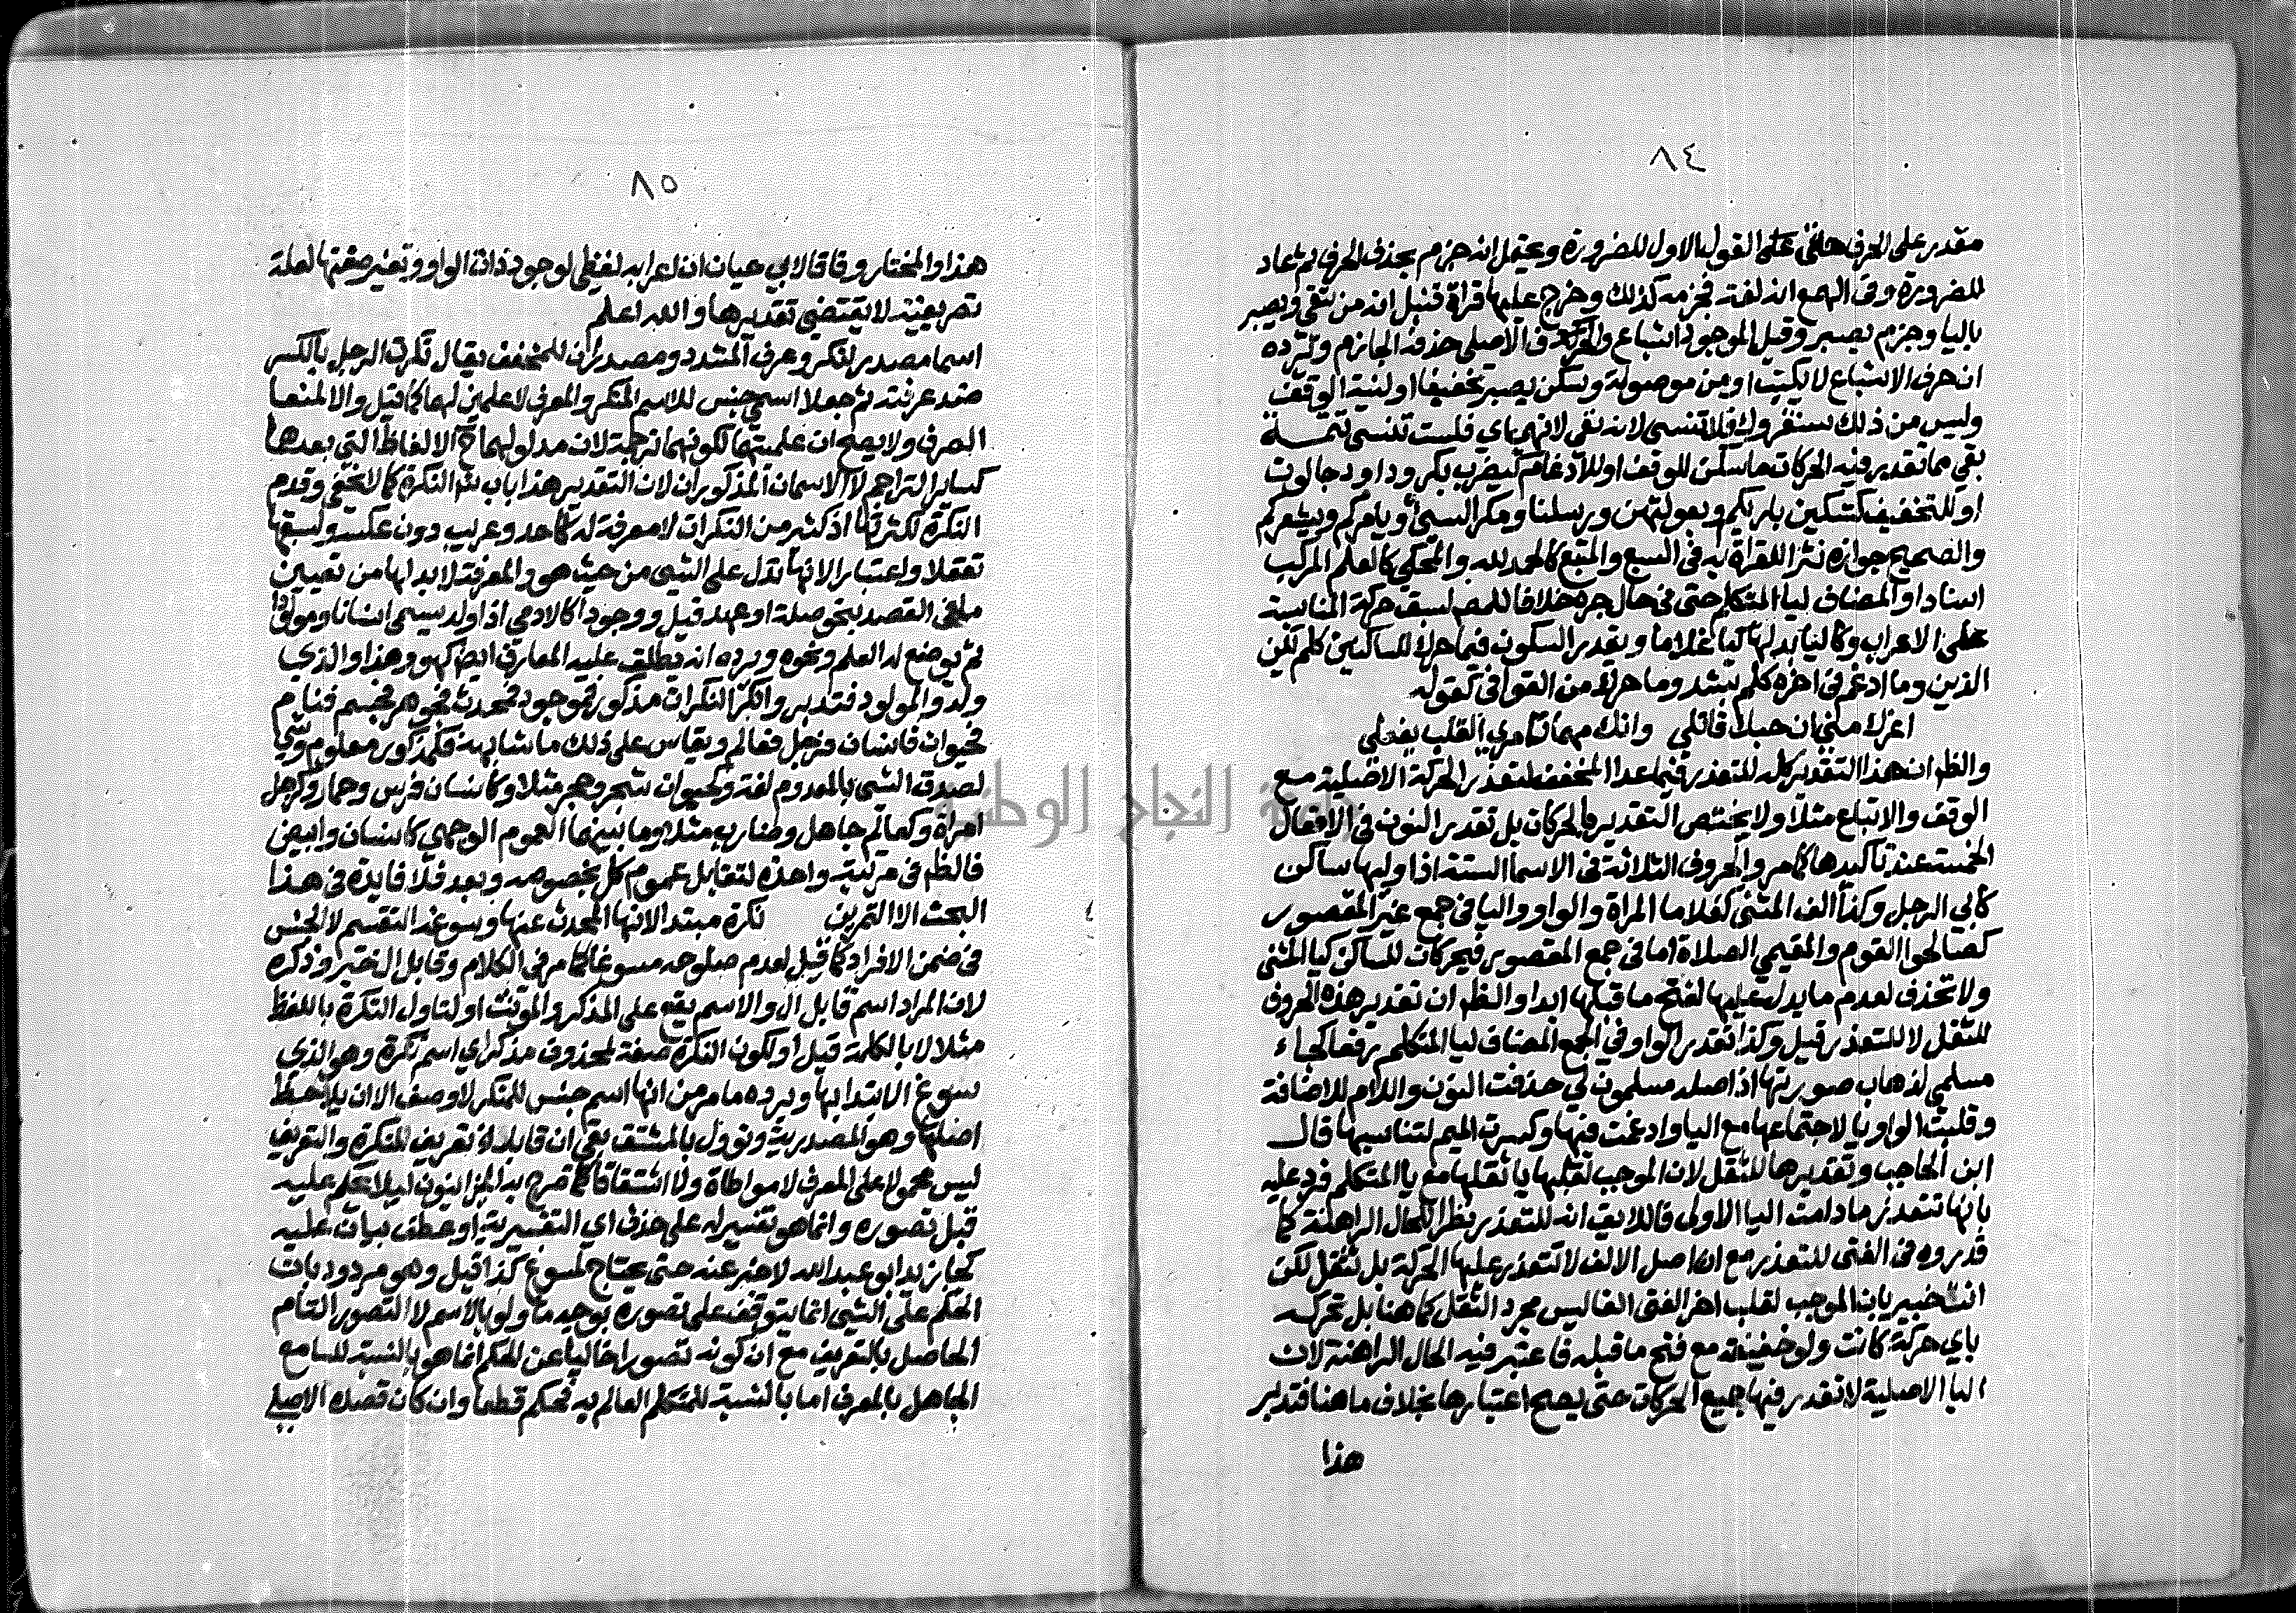 ٨٤
مقدر على الحرف هلفي على القول الاول للضرورة ويحتمل انه جزم بحذف الحرف ثم عاد
للضرورة وفى الهمع انه لغة فجزمه كذلك وخرج عليها قراة قنبل انه من يتقى ويصبر
باليا وجزم يصبر وقيل الموجود اشباع والحرف الاصلى حذفه الجازم ويرده
ان حرف الاشباع لا يكتب او من موصولة وسكن يصبر تخفيفا او لنية الوقف
وليس من ذلك سنقروك فلا تنسى لانه نفى لا نهى اي فلست تنسى تتمـــة
بقى مما تقدر فيه الحركات ما سكن للوقف او للادغام كيضرب بكر وداود جالوت
او للتخفيف كتسكين بارئكم وبعولتهن ورسلنا ومكر السيئ ويامركم ويشعركم
والصحيح جوازه نثرا للقراة به فى السبع والمتبع كالحمد لله والمحكي كالعلم المركب
اسنادا والمضاف ليا المتكلم حتى فى حال جره خلافا للمص لسبق حركة المناسبة
على الاعراب وكاليا بدلها كيا غلاما ويقدر السكون فيما حرك للساكنين كلم يكن
الذين وما ادغم فى اخره كلم يشد وما حرك من القوافى كقوله
اغرك منى ان حبك قاتلي وانك مهما تامري القلب يفعلي
والظم ان هذا التقدير كله للتعذر فيما عدا المخفف لتعذر الحركة الاصلية مع
الوقف والاتباع مثلا ولا يختص التقدير بالحركات بل تقدر النون فى الافعال
الخمسة عند تاكيدها كما مر والحروف الثلاثة فى الاسما الستة اذا وليها ساكن
كابي الرجل وكذا الف المثنى كغلاما المراة والواو واليا فى جمع غير المقصور
كصالحوا القوم والمقيمي الصلاة اما فى جمع المقصور فيحركات للساكن كيا المثنى
ولا تحذف لعدم ما يدل عليها لفتح ما قبلها ابدا والظم ان تقدير هذه الحروف
للثقل لا للتعذر قيل وكذا تقدر الواو فى الجمع المضاف ليا المتكلم رفعا كجاء
مسلمي لذهاب صورتها اذ اصله مسلمون لي حذفت النون واللام للاضافة
وقلبت الواو يا لاجتماعها مع اليا وادغمت فيها وكسرت الميم لتناسبها قال
ابن الحاجب وتقديرها للثقل لان الموجب لقلبها يا ثقلها مع يا المتكلم فرد عليه
بانها تتعذر ما دامت اليا الاولى قاللايق انه للتعذر نظرا للحال الراهنة كما
قدروه فى الفتى للتعذر مع ان اصل الالف لا تتعذر عليها الحركة بل تثقل لكن
انت خبير بان الموجب لقلب اخر الفتى الفا ليس مجرد الثقل كما هنا بل تحركه
باي حركة كانت ولو خفيفة مع فتح ما قبله فاعتبر فيه الحال الراهنة لان
اليا الاصلية لا تقدر فيها جميع الحركات حتى يصح اعتبارها بخلاف ما هنا فتدبر
هذا
٨٥
هذا والمختار وفاقا لابي حيان ان اعرابه لفظي لوجود ذات الواو وتغير صفتها لعلة
تصريفية لا يقتضي تقديرها والله اعلم
اسما مصدر لنكر وعرف المشدد ومصدران للمخفف يقال نكرت الرجل بالكسر
ضد عرفته ثم جعلا اسمي جنس للاسم المنكر والمعرف لا علمين لهما كما قيل والا لمنعا
الصرف ولا يصح ان علميتهما لكونهما ترجمة لان مدلولهما ح الالفاظ التى بعدها
كساير التراجم لا الاسمان المذكوران لان التقدير هذا باب شرح النكرة كما لا يخفى وقدم
النكرة لكثرتها اذ كثير من النكرات لا معرفة له كاحد وعريب دون عكسه ولسبقها
تعقلا واعتبارا لانها تدل على الشى من حيث هو والمعرفة لا بد لها من تعيين
ملغى القصد بنحو صلة او عهد قيل ووجودا كالادمي اذا ولد يسمى انسانا ومولودا
ثم يوضع له العلم ونحوه ويرده انه يطلق عليه المعارف ايضا كهو وهذا والذي
ولد والمولود فتدبر وانكر النكرات مذكور فموجود فمحدث فجوهر فجسم فنام
فحيوان فانسان فرجل فعالم ويقاس على ذلك ما شابهه فكمذكور معلوم وشي
لصدق الشى بالمعدوم لغة وكحيوان شجر وحجر مثلا وكانسان فرس وحمار وكرجل
امراة وكعالم جاهل وضارب مثلا وما بينهما العموم الوجهي كانسان وابيض
فالظم فى مرتبة واحدة لتقابل عموم كل بخصوصه وبعد فلا فايدة فى هذا
البحث الا التمرين نكرة مبتدا لانها المحدث عنها وسوغه التقسيم لا الجنس
فى ضمن الافراد كما قيل لعدم صلوحه مسوغا كما مر فى الكلام وقابل الخبر وذكره
لان المراد اسم قابل ال والاسم يقع على المذكر والمونث او لتاول النكرة باللفظ
مثلا لا بالكلمة قيل او لكون النكرة صفة لمحذوف مذكر اي اسم نكرة وهو الذي
سوغ الابتدا بها ويرده ما مر من انها اسم جنس للمنكر لا وصف الا ان يلاحظ
اصلها وهو المصدرية ونوول بالمشتق بقي ان قابل ال تعريف للنكرة والتعريف
ليس محمولا على المعرف لا مواطاة ولا اشتقاقا كما صرح به الميزانيون ليلا يحكم عليه
قبل تصوره وانما هو تفسير له على حذف اي التفسيرية او عطف بيان عليه
كجا زيد ابو عبد الله لا خبر عنه حتى يحتاج لمسوغ كذا قيل وهو مردود بان
الحكم على الشي انما يتوقف على تصوره بوجه ما ولو بالاسم لا التصور التام
الحاصل بالتعريف مع ان كونه تصورا خاليا عن الحكم انما هو بالنسبة للسامع
الجاهل بالمعرف اما بالنسبة للمتكلم العالم به فحكم قطعا وان كان قصده الاصلي
جامعة النجاح الوطنية